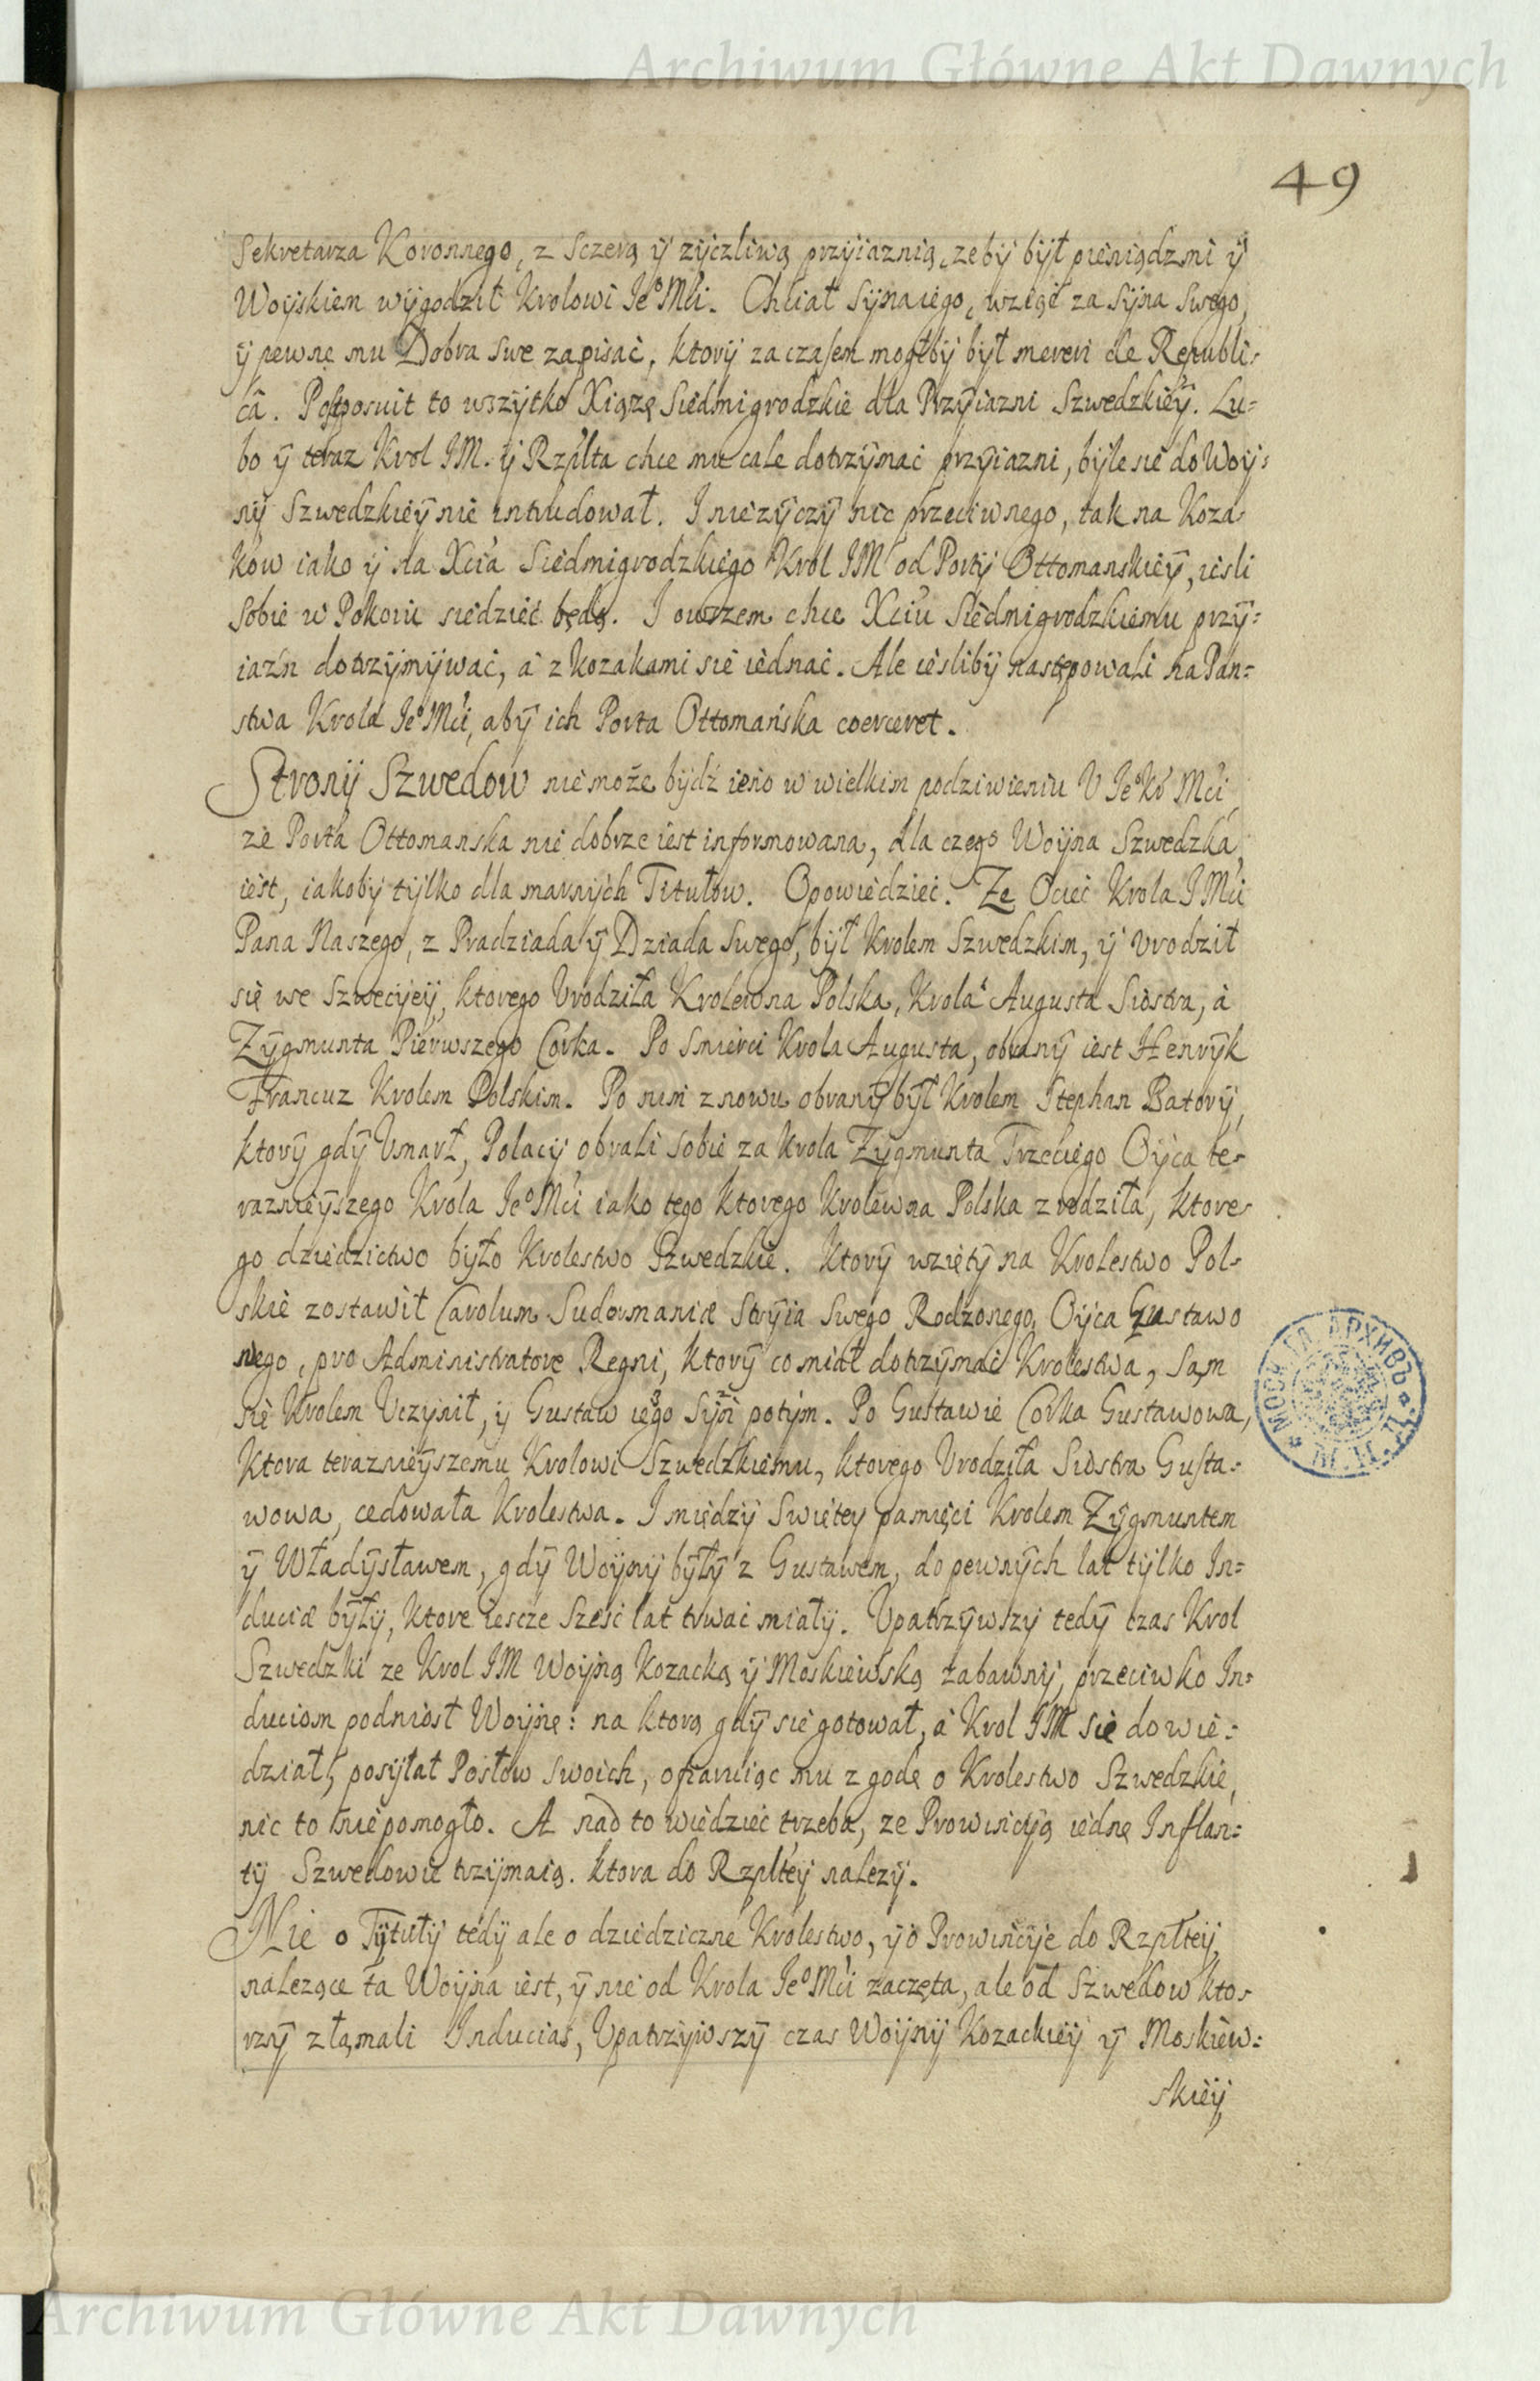 Archiwum Główne Akt Dawnych
49
Sekretarza Koronnego, z sczerą ÿ zÿczliwą przÿiaznią, zebÿ bÿł pieniądzmi ÿ
Woÿskiem wÿgodził Krolowi Jeº Mći. Chciał Sÿna iego, wziąć za Sÿna Swego,
ÿ pewne mu Dobra swe zapisać, ktorÿ za czasem mogłbÿ bÿł mereri de Republi-
câ. Postposuit to wszÿtko Xiąze Siedmigrodzkie dla Przÿiazni Szwedzkieÿ. Lu-
bo ÿ teraz Krol JM. ÿ Rzplta chce mu cale dotrzÿmać przÿiazni, bÿle sie do Woÿ-
nÿ Szwedzkieÿ nie intrudował. J nie zÿczÿ nic przeciwnego, tak na Koza-
ków iako ÿ na Xcia Siedmigrodzkiego Krol JM od Portÿ Ottomanskieÿ, iesli
sobie w Pokoiu siedzieć będą. J owszem chce Xciu Siedmigrodzkiemu przÿ-
iaźń dotrzÿmÿwać, á z kozakami sie iednać. Ale iesliby następowali na Pan-
stwa Krola Jeº Mći, abÿ ich Porta Ottomańska coerceret.
Stronÿ Szwedow nie może bÿdź ieno w wielkim podziwieniu U Jeº Kr Mći
ze Porta Ottomanska nie dobrze iest informowana, dla czego Woÿna Szwedzka
iest, iakobÿ tÿlko dla marnÿch Titułow. Opowiedzieć. Ze Ociec Krola J Mći
Pana Naszego, z Pradziada ÿ Dziada Swego, bÿł Krolem Szwedzkim, ÿ Urodził
się we Szwecÿeÿ, ktorego Urodziła Krolewna Polska, Krola Augusta Siostra, á
Zÿgmunta Pierwszego Corka. Po Smierci Krola Augusta, obranÿ iest Henrÿk
Francuz Krolem Polskim. Po nim znowu obranÿ bÿł Krolem Stephan Batorÿ,
ktorÿ gdÿ Umarł, Polacÿ obrali sobie za Krola Zÿgmunta Trzeciego Oÿca te-
raznieÿszego Krola Jeº Mći iako tego ktorego Krolewna Polska zrodziła, ktore-
go dziedzictwo bÿło Krolestwo Szwedzkie. Ktorÿ wziętÿ na Krolestwo Pol-
skie zostawił Carolum Sudermaniæ Strÿia Swego Rodzonego, Oÿca Gustawo
wego, pro Administratore Regni, ktorÿ co miał dotrzÿmać Krolestwa, sam
sie Krolem Uczÿnił, ÿ Gustaw iego Sÿn potÿm. Po Gustawie Corka Gustawowa,
Ktora teraznieÿszemu Krolowi Szwedzkiemu, ktorego Urodziła Siostra Gusta-
wowa, cedowała Krolestwa. J międzÿ Swiętey pamięci Krolem Zÿgmuntem
ÿ Władÿsławem, gdÿ Woÿnÿ bÿłÿ z Gustawem, do pewnÿch lat tÿlko In-
duciæ bÿłÿ, ktore iescze sześć lat trwać miałÿ. Upatrzÿwszÿ tedÿ czas Krol
Szwedzki ze Krol JM Woÿną Kozacką ÿ Moskiewską zabawnÿ, przeciwko In-
duciom podniosł Woÿnę: na ktorą gdÿ sie gotował, á Krol JM sie dowie-
dział, posÿłał Posłow swoich, ofiaruiąc mu zgodę o Krolestwo Szwedzkie,
nic to nie pomogło. A nad to wiedzieć trzeba, ze Prowincÿą iednę Inflan-
tÿ Szwedowie trzÿmaią. ktora do Rzplteÿ nalezÿ.
Nie o Tÿtułÿ tedÿ ale o dziedziczne Krolestwo, ÿ o Prowincÿe do Rzpłteÿ
nalezące ta Woÿna iest, ÿ nie od Krola Jeº Mći zaczęta, ale od Szwedow kto-
rzÿ złamali Inducias, Upatrzÿwszÿ czas Woÿnÿ Kozackieÿ ÿ Moskiew-
skieÿ
Archiwum Główne Akt Dawnych